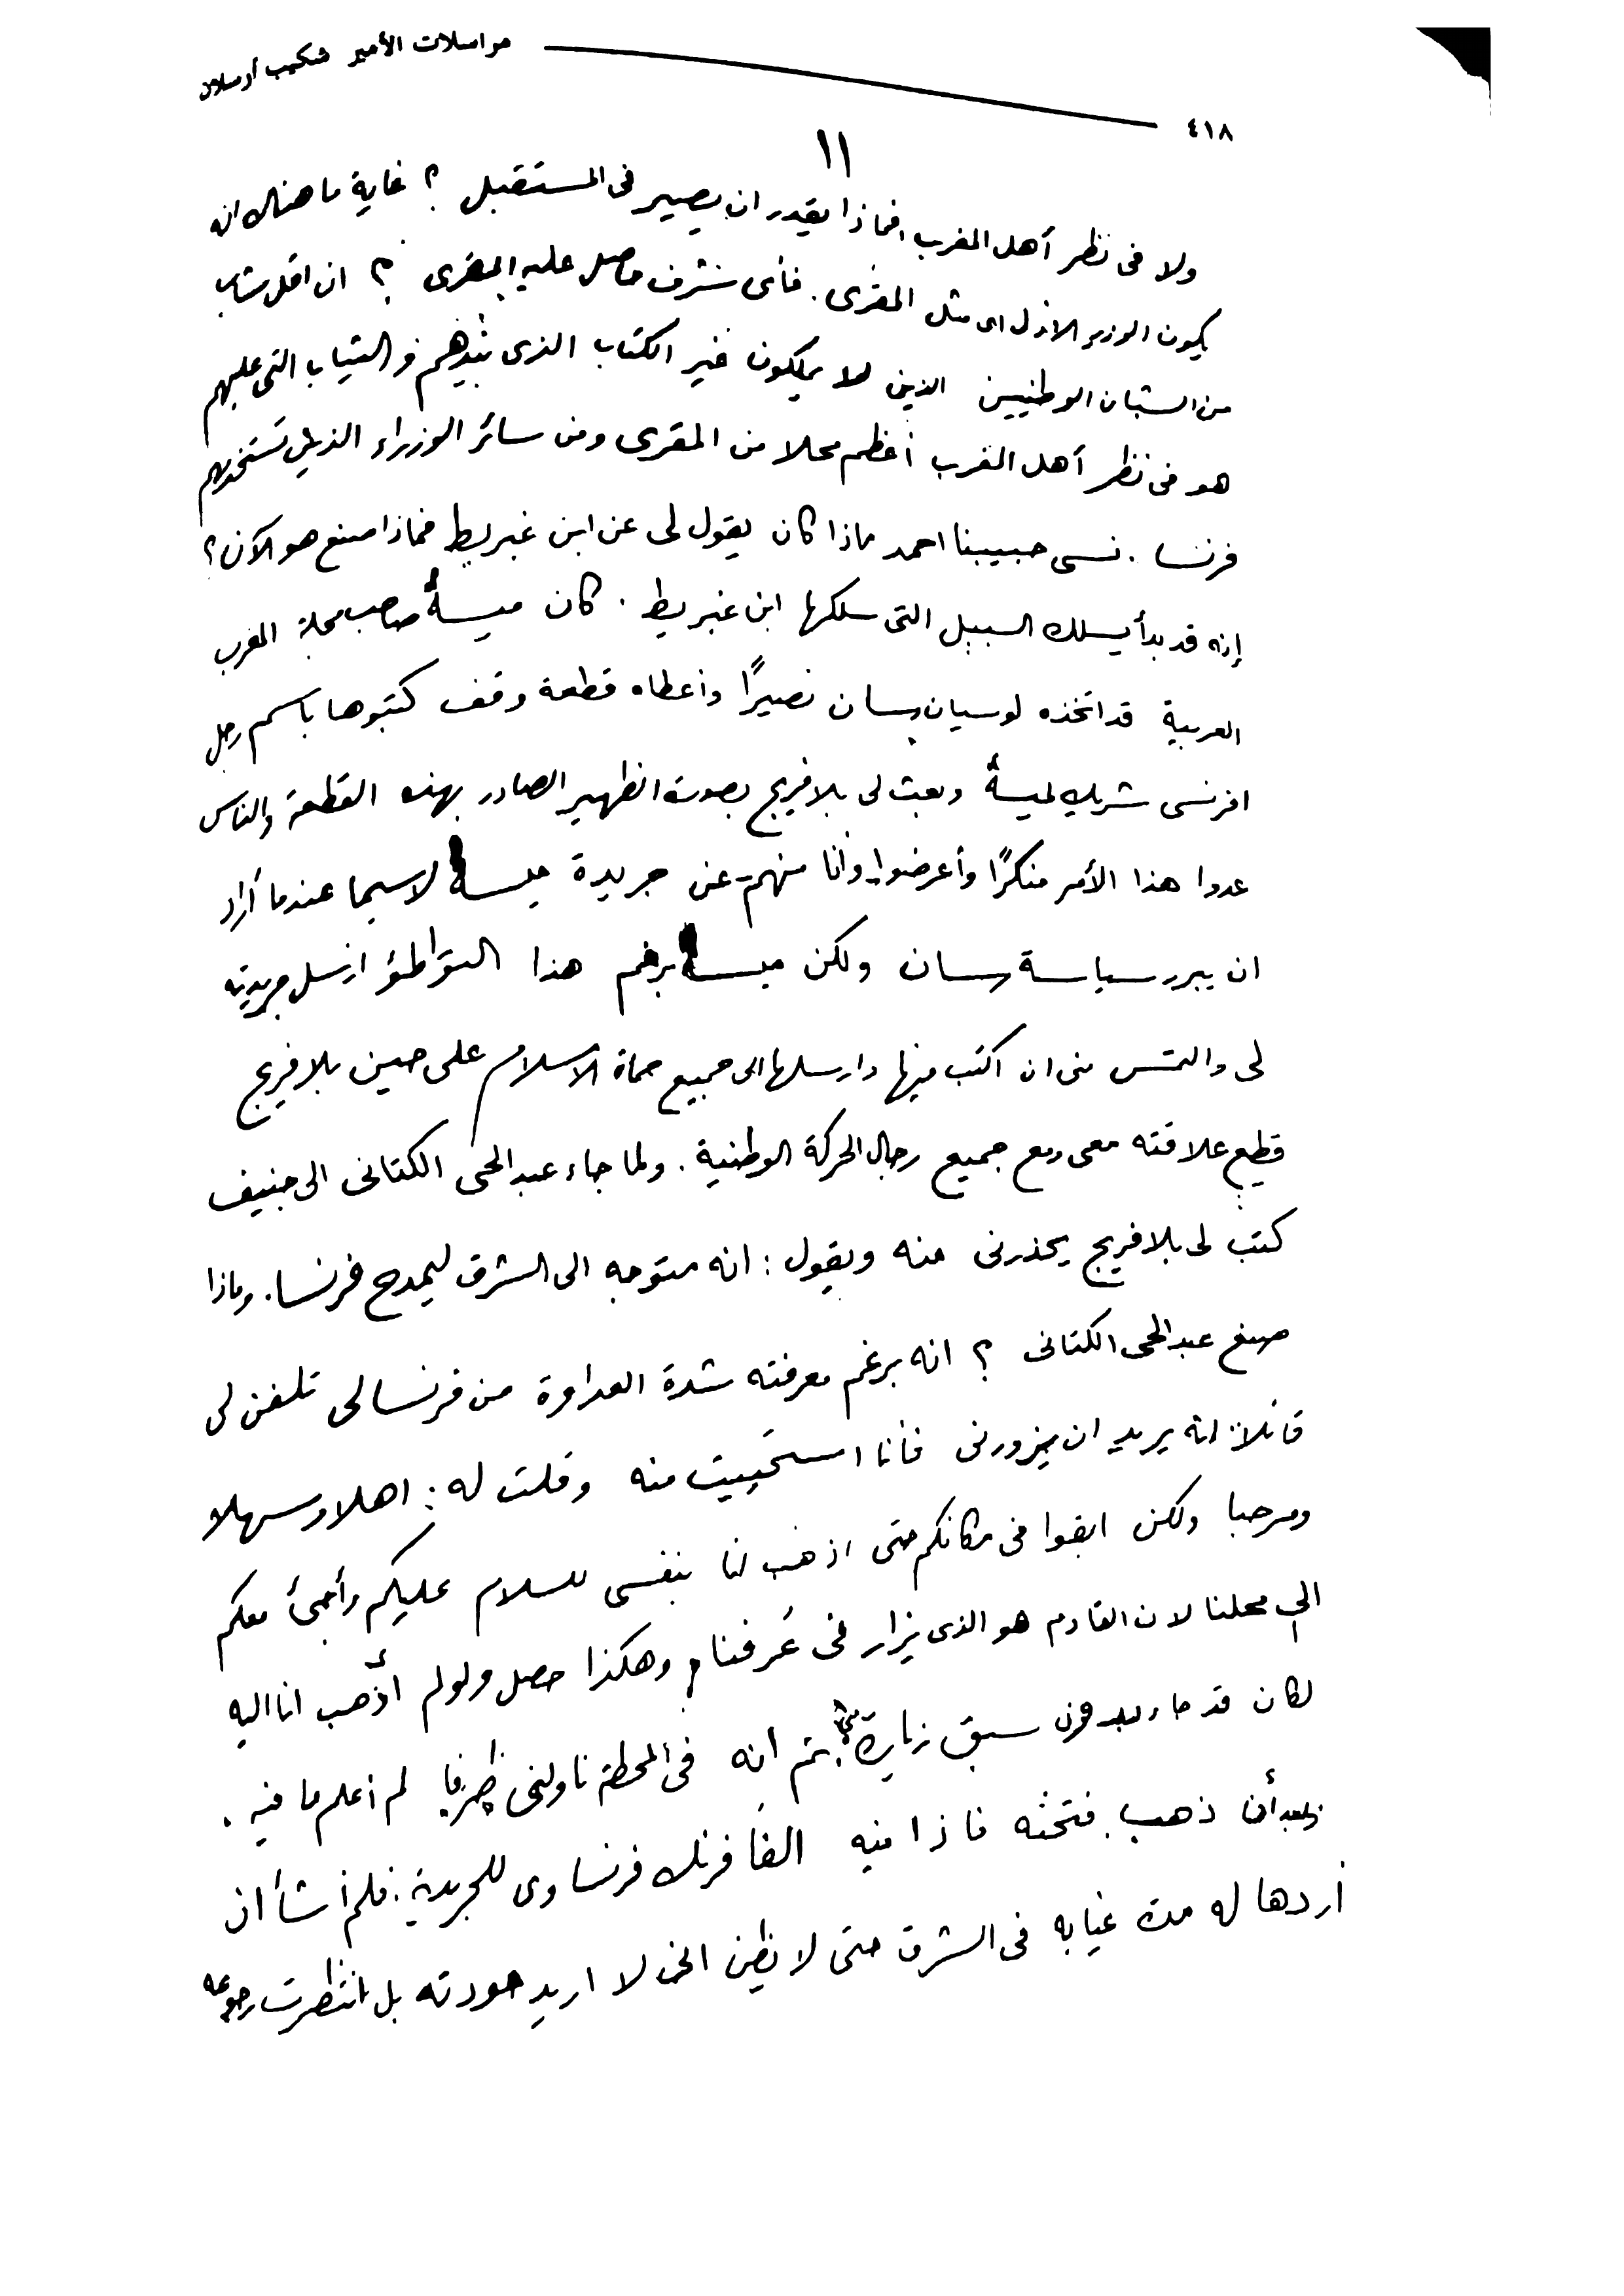 مراسلات الأمير شكيب أرسلان
٤١٨
١١
ولا فى نظر أهل المغرب فماذا يقدر ان يصير فى المستقبل ؟ غاية ما هنالك انه
يكون الوزير الاول اى مثل المقرى . فأى شرف حاصل عليه المقرى ؟ ان اقل شاب
من الشبان الوطنيين الذين لا يملكون غير الكتاب الذى بيدهم والثياب التى عليهم
هو فى نظر أهل المغرب أعظم محلا من المقرى ومن سائر الوزراء الذين تستخدمهم
فرنسا . نسى حبيبنا احمد ماذا كان يقول لى عن ابن غبريط فماذا صنع هو الآن ؟
إنه قد بدأ يسلك السبيل التى سلكها ابن غبريط . كان ميسة صاحب مجلة المغرب
العربية قد اتخذه لوسيان سان نصيرًا وأعطاه قطعة وقف كتبوها باسم رجل
افرنسى شريك لميسة وبعث لى بلافريج بصورة الظهير الصادر بهذه القطعة والناس
عدوا هذا الأمر منكرًا وأعرضوا - وأنا منهم - عن جريدة ميسة لاسيما عندما أراد
ان يبرر سياسة سان ولكن ميسة برغم هذا التواطؤ ارسل جريدته
لى والتمس منى ان اكتب فيها وارسلها الى جميع حماة الاسلام على حين بلافريج
قطع علاقته معى ومع جميع رجال الحركة الوطنية . ولما جاء عبد الحى الكتانى الى جنيف
كتب لى بلافريج يحذرنى منه ويقول : انه متوجه الى الشرق ليمدح فرنسا . وماذا
صنع عبد الحى الكتانى ؟ انه برغم معرفته شدة العداوة من فرنسا لى تلفن لى
قائلا انه يريد ان يزورنى فأنا استحييت منه وقلت له : اهلا وسهلا
ومرحبا ولكن ابقوا فى مكانكم حتى اذهب انا بنفسى للسلام عليكم وأجئ معكم
الى محلنا لان القادم هو الذى يزار فى عرفنا وهكذا حصل ولو لم أذهب انا اليه
لكان قد جاء سبق زيارة منى ثم انه فى المحطة ناولنى ظرفا لم أعلم ما فيه .
وبعد أن ذهب فتحته فاذا فيه الفا فرنك فرنساوى للجريدة . فلم أشأ ان
أردها له مدة غيابه فى الشرق حتى لا يظن انى لا اريد عودته بل انتظرت رجوعه